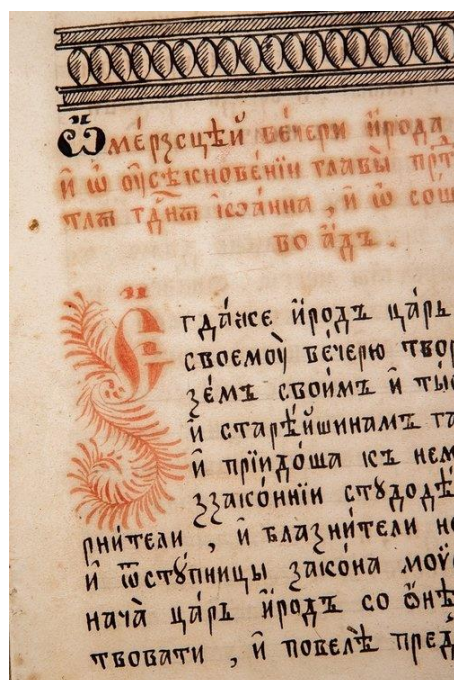 Ѽ мéрзсцѣй ве́чери и҆́рода
и҆ ѡ҆ ѹ҆сѣкнове́нїи главы̀ прⷣт
тлѧ гдⷭ҇нѧ їѡа́нна , и҆ ѡ҆ сош
во а҆́дъ .
Є҆гда́же и҆́родъ ца́рь
своемоу̀ ве́черю твор
зе́мъ свои́мъ и҆ ты́с
и҆ старѣ́йшинамъ га
и҆ прїидо́ша къ нем
ззако́ннїи стꙋдодѣ́
рни́тели , и҆ блазни́тели не
и҆ ѿстꙋ́пницы зако́на моѵ̈
нача̀ ца́рь и҆́родъ со ѻ҆нѣ
твовати , и҆ повелѣ̀ пред